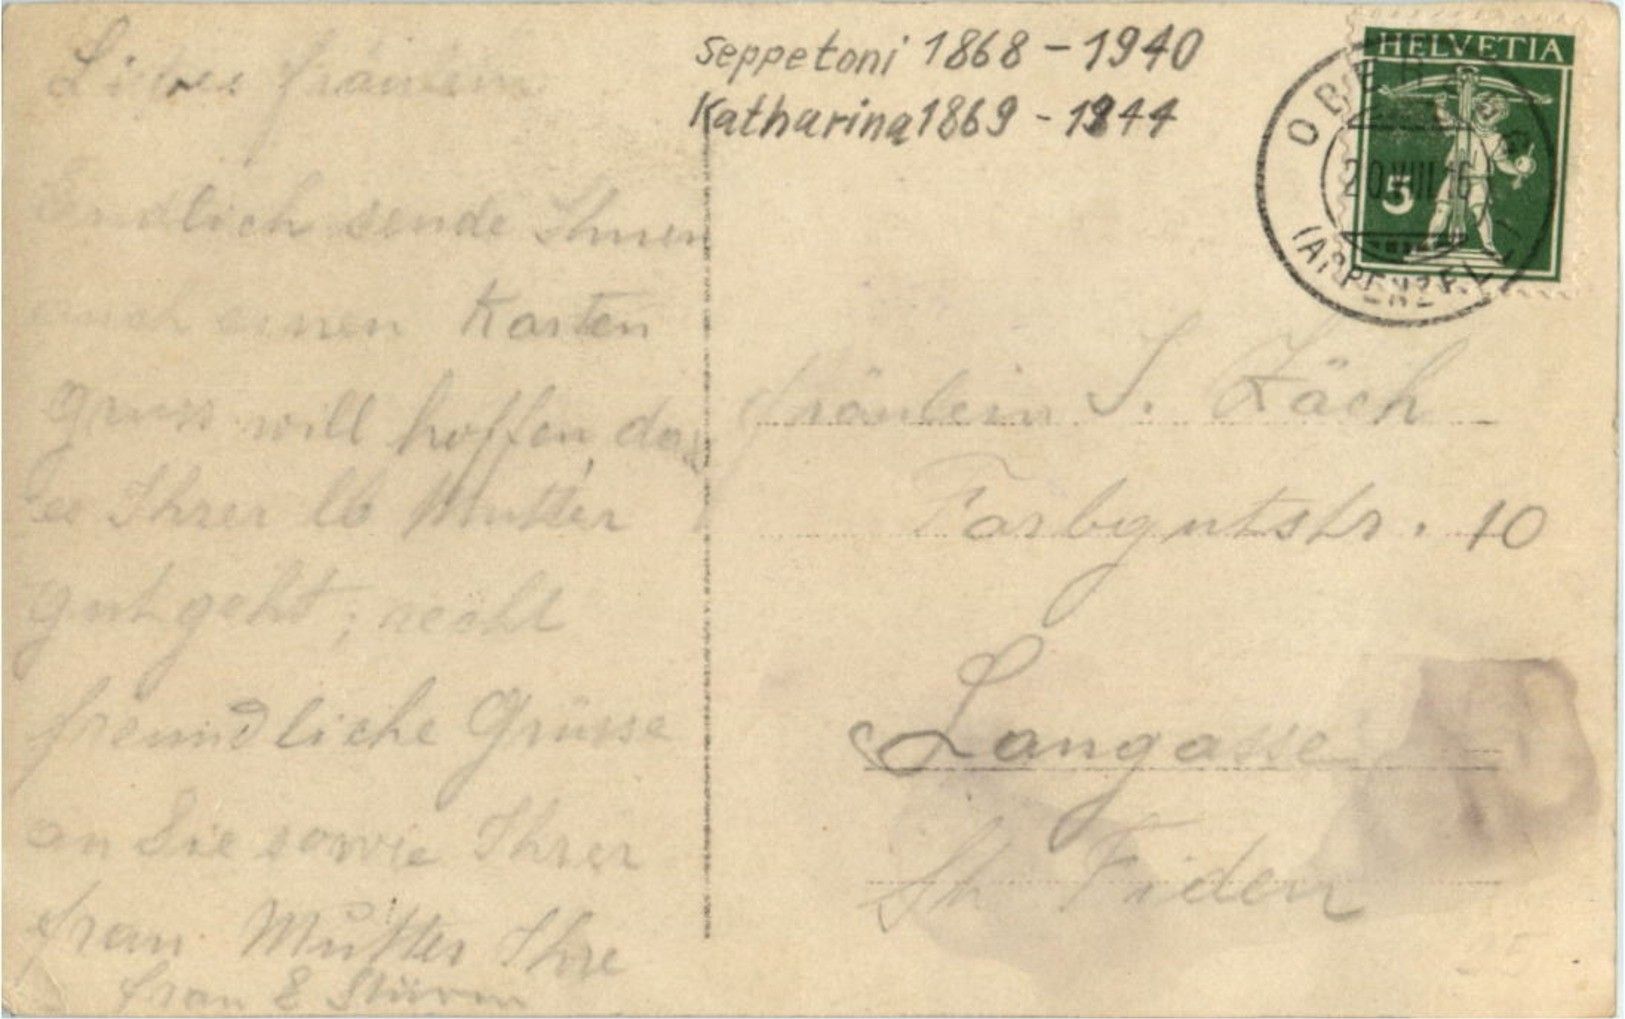 Seppetoni 1868 - 1940
Katharina 1869 - 1944
HELVETIA
5
20.VIII.16
(APPENZELL)
Liebes fräulein
Endlich sende Ihnen
auch einen Karten
gruss will hoffen, dass
es Ihrer lb Mutter
gut geht; recht
freundliche Grüsse
an Sie sowie Ihrer
frau Mutter Ihre
frau E Sturm
fräulein S. Zäch
Farbgutstr. 10
Langasse
St Fiden
25